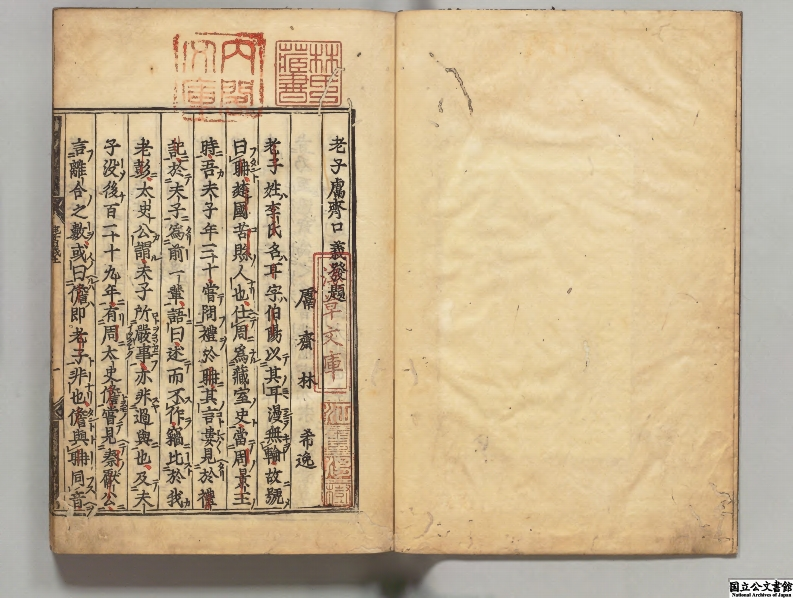 老子鬳齋口義發題
鬳齋林 希逸
老子姓李氏名耳字伯陽以其耳漫無輪故號
曰聃楚國苦縣人也仕周為藏室史當周景王
時吾夫子年三十嘗問禮於聃其言屢見於禮
記於夫子為前一輩語曰述而不作竊比於我
老彭太史公謂夫子所嚴事亦非過與也及夫
子沒後百二十九年有周太史儋嘗見秦獻公
言離合之數或曰儋即老子非也儋與聃同音
淺草文庫
林氏藏書
國立公文書館
National Archives of Japan